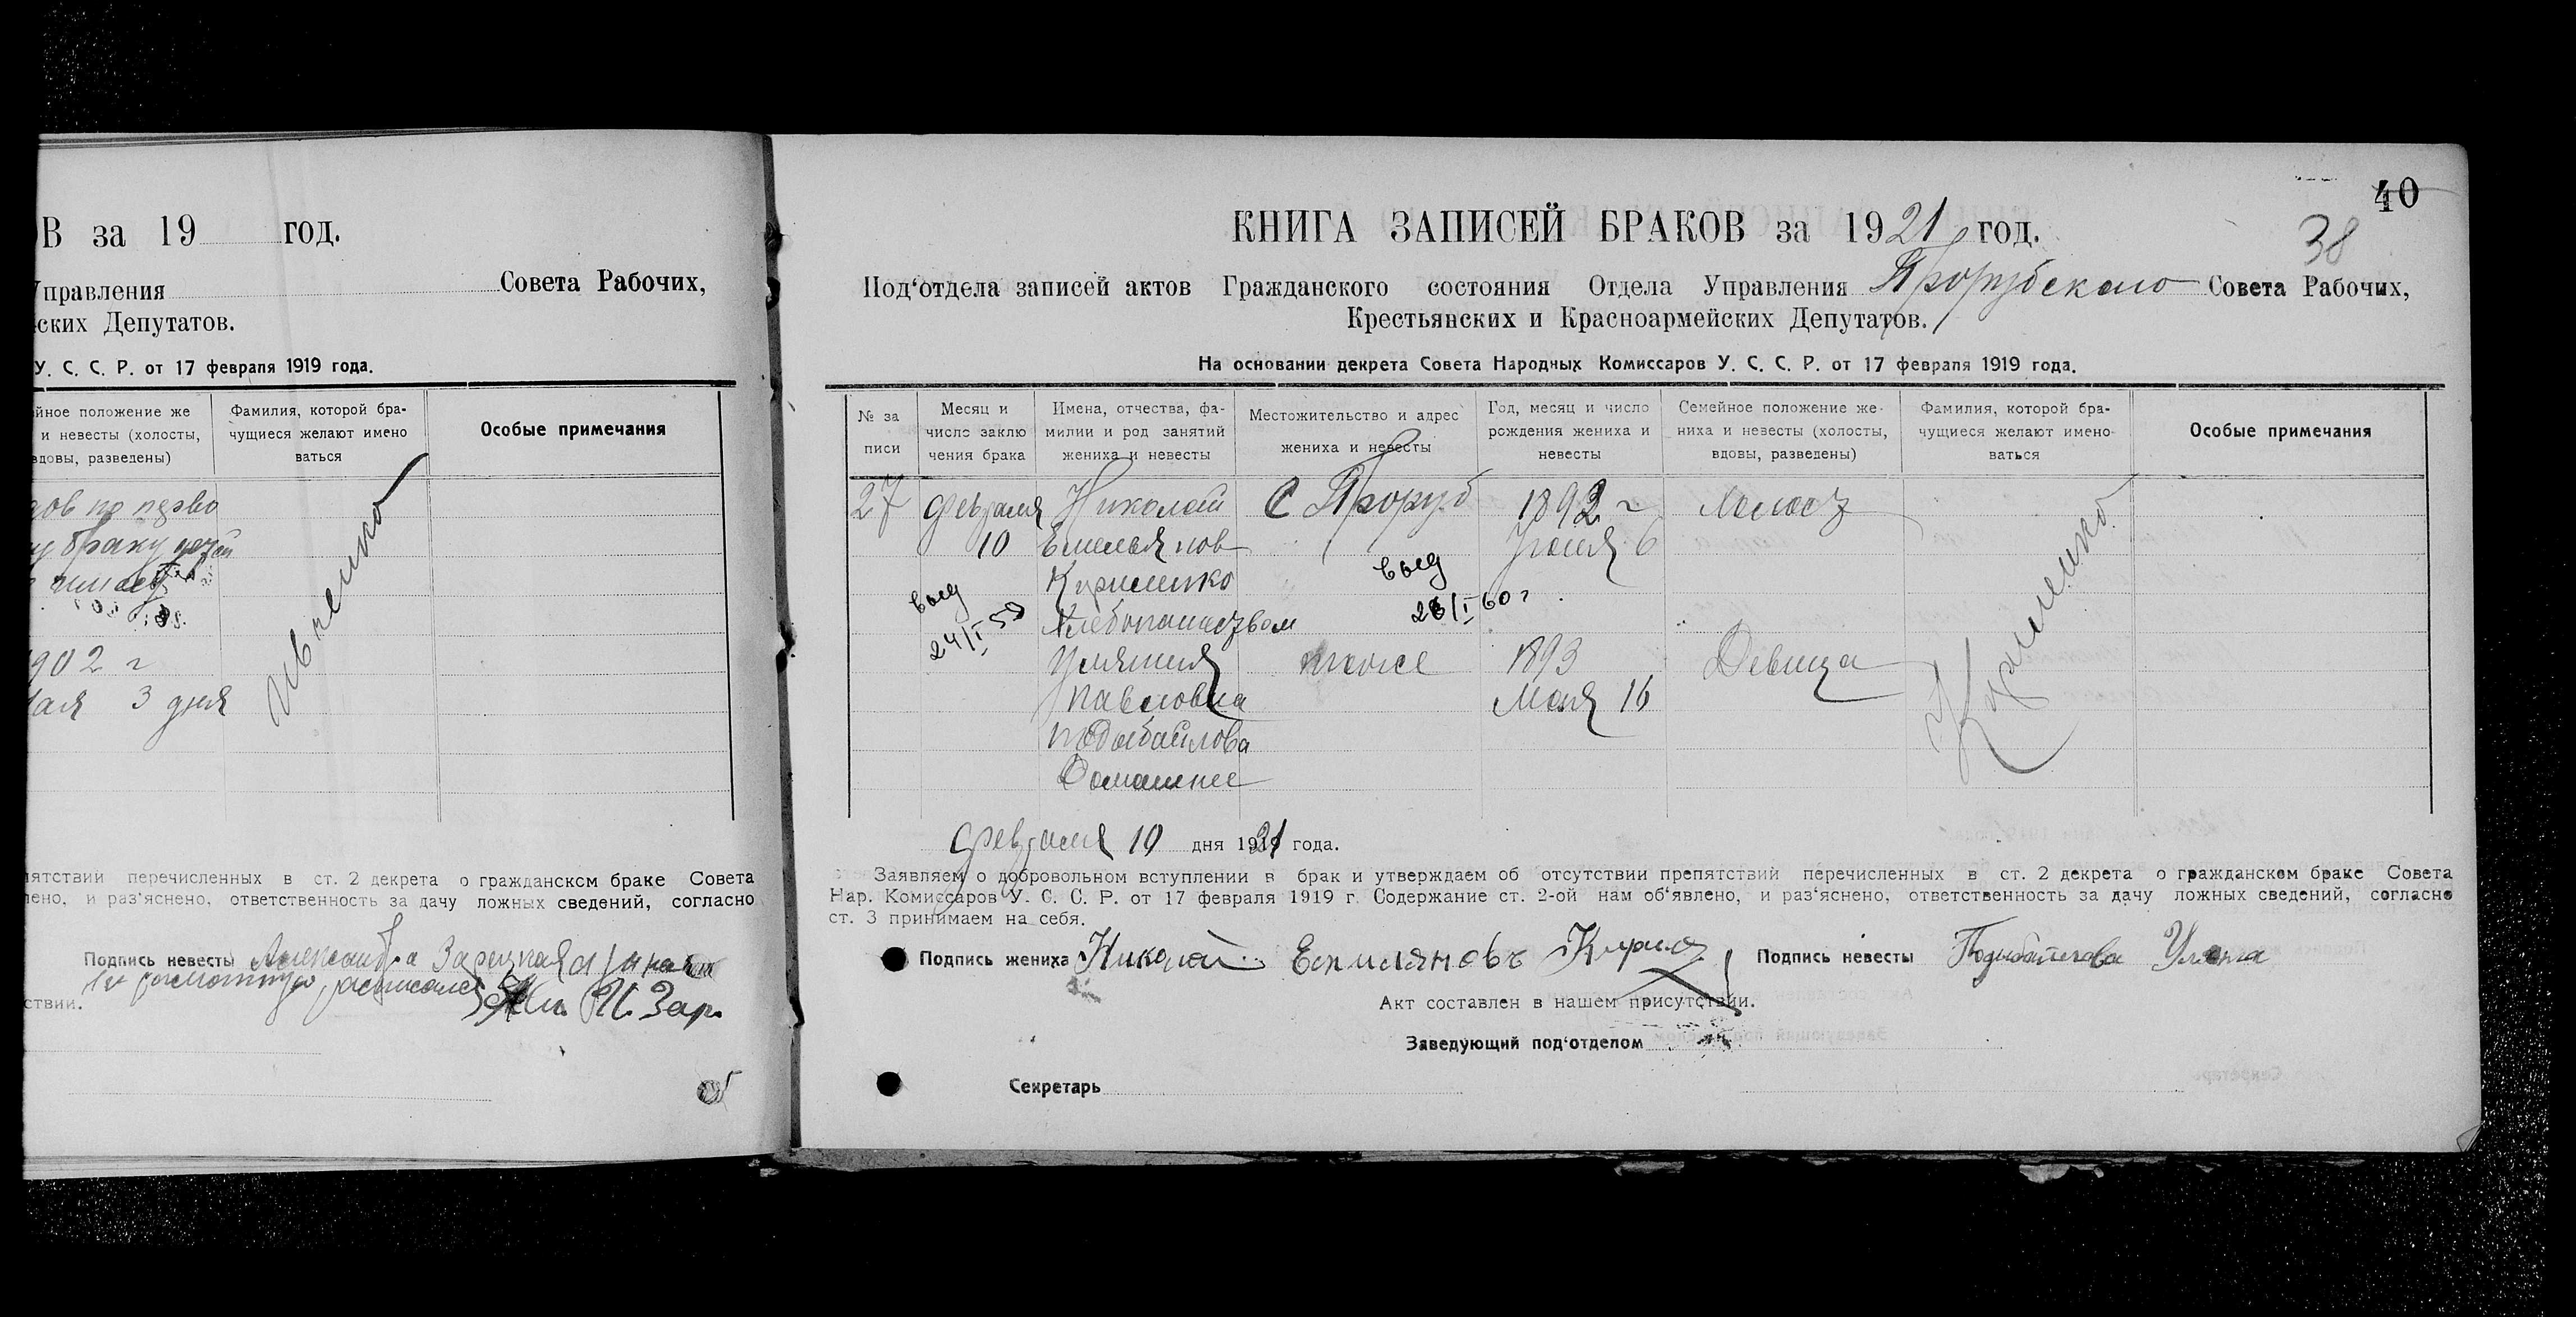 В за 19 год.
Управления Совета Рабочих,
ских Депутатов.
У. С. С. Р. от 17 февраля 1919 года.
йное положение же
и невесты (холосты,
вдовы, разведены)
Фамилия, которой бра-
чущиеся желают имено
ваться
Особые примечания
ов по перво
му браку детей
902 г
мая 3 дня
Ивченко
пятствии перечисленных в ст. 2 декрета о гражданском браке Совета
лено, и раз'яснено, ответственность за дачу ложных сведений, согласно
Подпись невесты Александра Зарецкая
расписался
ствии.
И. Зар.
40
38
КНИГА ЗАПИСЕЙ БРАКОВ за 1921 год.
Под'отдела записей актов Гражданского состояния Отдела Управления Прорубского Совета Рабочих,
Крестьянских и Красноармейских Депутатов.
На основании декрета Совета Народных Комиссаров У. С. С. Р. от 17 февраля 1919 года.
№ за
писи
Месяц и
число заклю
чения брака
Имена, отчества, фа-
милии и род занятий
жениха и невесты
Местожительство и адрес
жениха и невесты
Год, месяц и число
рождения жениха и
невесты
Семейное положение же-
ниха и невесты (холосты,
вдовы, разведены)
Фамилия, которой бра-
чущиеся желают имено-
ваться
Особые примечания
27 февраля Николай С Проруб 1892 г Холост
10 Емельянов 6
Кириленко
Хлебопашеством
выд
24/I 59
выд
28/I 60 г.
Ульяния тоже 1893 Девица
Павловна Мая 16
Подобайлова
Домашнее
Кириленко
Февраля 10 дня 1921 года.
Заявляем о добровольном вступлении в брак и утверждаем об отсутствии препятствий перечисленных в ст. 2 декрета о гражданском браке Совета
Нар. Комиссаров У. С. С. Р. от 17 февраля 1919 г. Содержание ст. 2-ой нам об'явлено, и раз'яснено, ответственность за дачу ложных сведений, согласно
ст. 3 принимаем на себя.
Подпись жениха Николай Емиляновъ Кирил Подпись невесты Подобайлова Уляна
Акт составлен в нашем присутствии.
Заведующий под'отделом
Секретарь